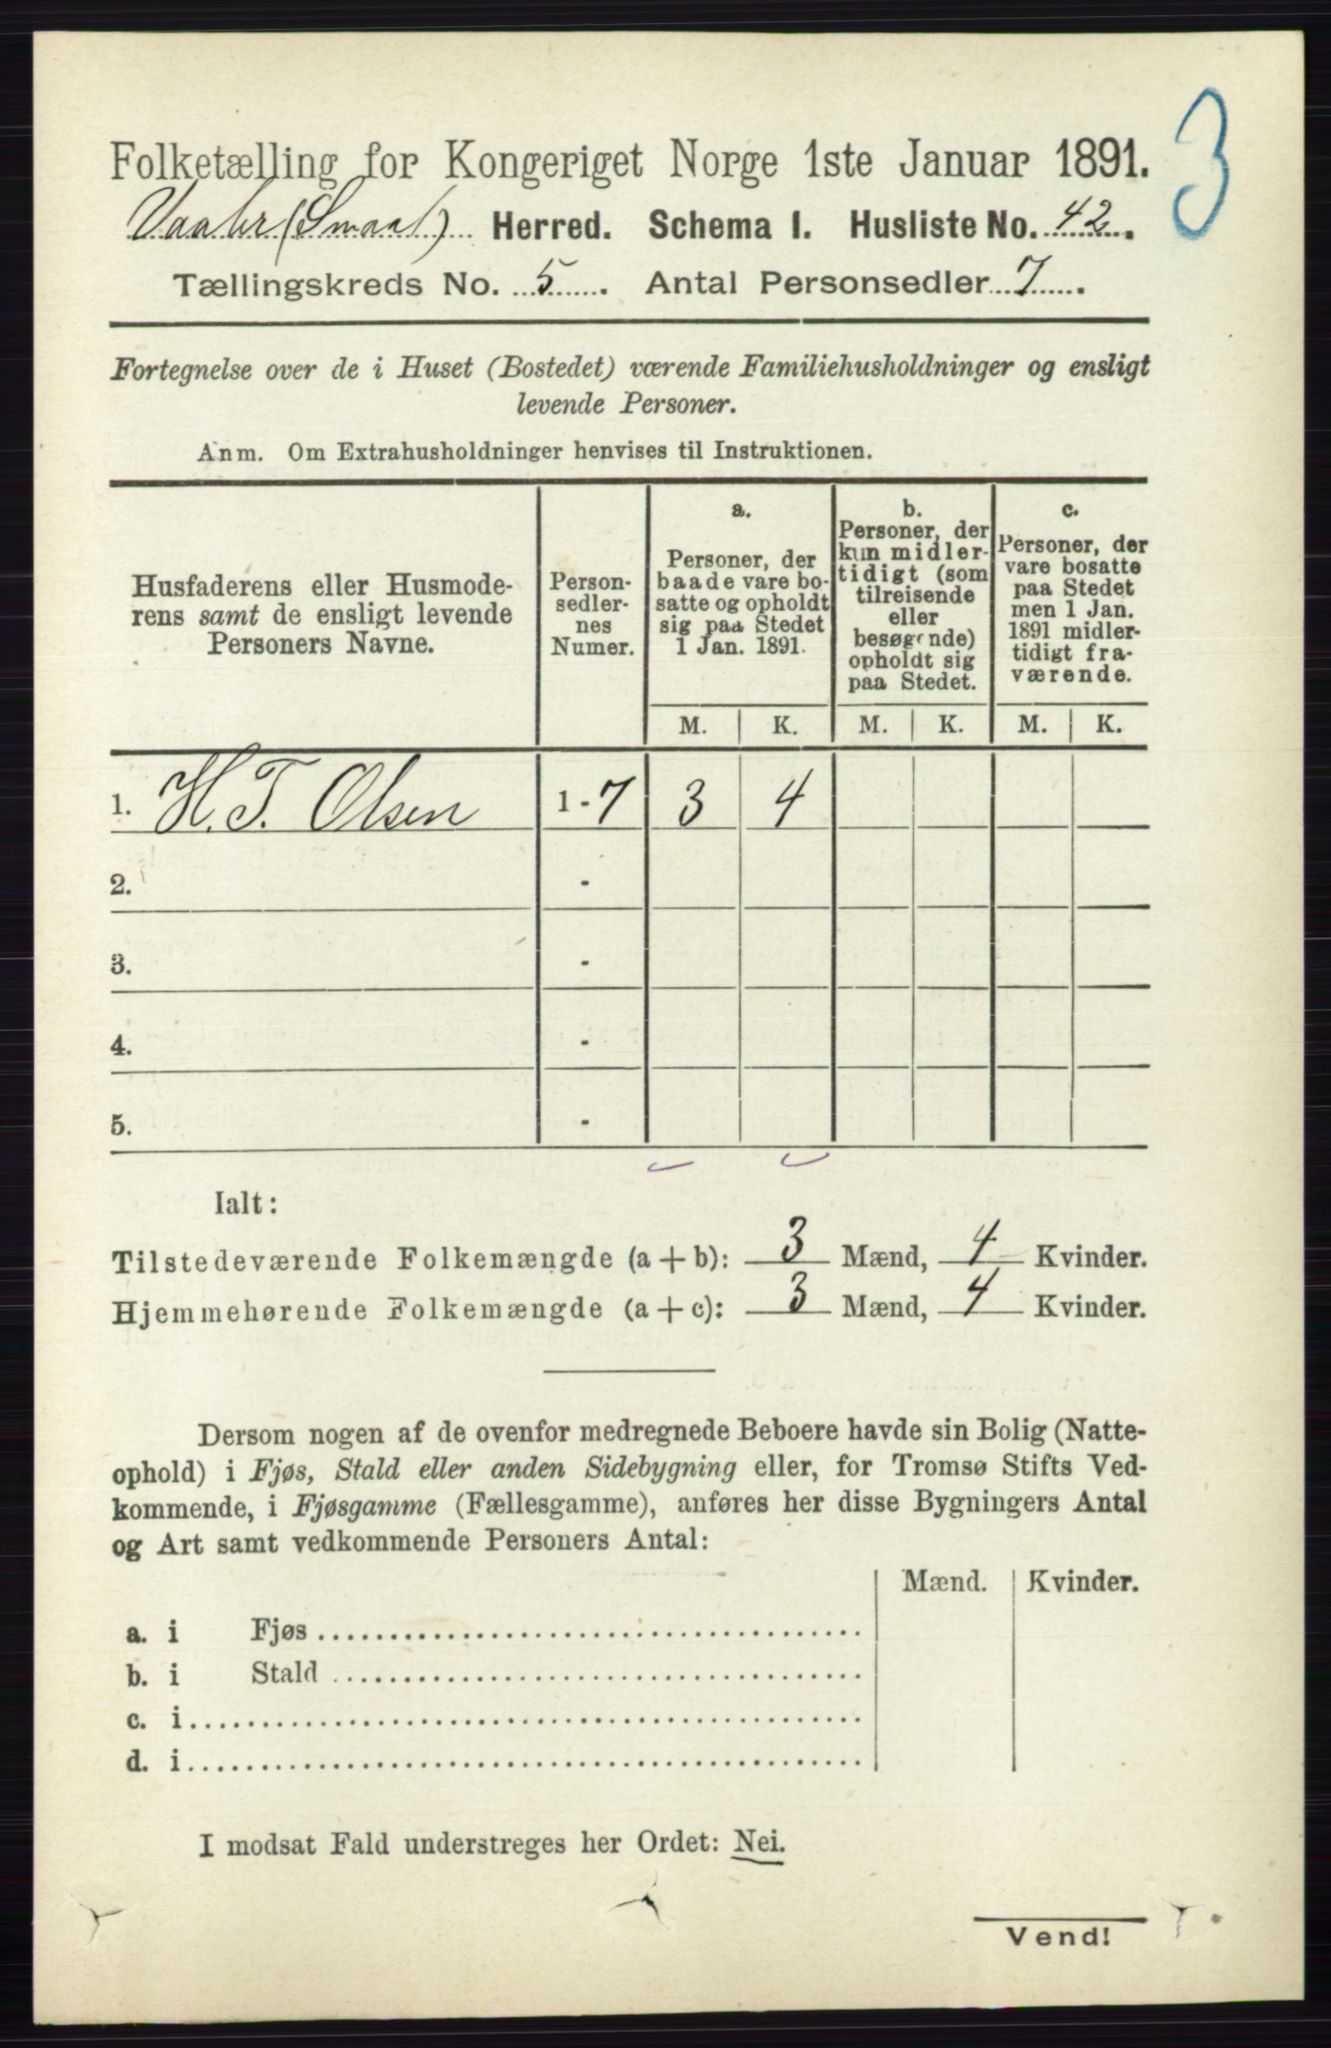 3
Folketælling for Kongeriget Norge 1ste Januar 1891.
Vaaler (Smaal) Herred. Schema I. Husliste No. 42.
Tællingskreds No. 5. Antal Personsedler 7.
Fortegnelse over de i Huset (Bostedet) værende Familiehusholdninger og ensligt
levende Personer.
Anm. Om Extrahusholdninger henvises til Instruktionen.
Husfaderens eller Husmode-
rens samt de ensligt levende
Personers Navne.
Person-
sedler-
nes
Numer.
a.
Personer, der
baade vare bo-
satte og opholdt
sig paa Stedet
1 Jan. 1891.
b.
Personer, der
kun midler-
tidigt (som
tilreisende
eller
besøgende)
opholdt sig
paa Stedet.
c.
Personer, der
vare bosatte
paa Stedet
men 1 Jan.
1891 midler-
tidigt fra-
værende.
M. K. M. K. M. K.
1. H. T. Olsen 1 - 7 3 4
2. -
3. -
4. -
5. -
Ialt:
Tilstedeværende Folkemængde (a + b): 3 Mænd, 4 Kvinder.
Hjemmehørende Folkemængde (a + c): 3 Mænd, 4 Kvinder.
Dersom nogen af de ovenfor medregnede Beboere havde sin Bolig (Natte-
ophold) i Fjøs, Stald eller anden Sidebygning eller, for Tromsø Stifts Ved-
kommende, i Fjøsgamme (Fællesgamme), anføres her disse Bygningers Antal
og Art samt vedkommende Personers Antal:
Mænd. Kvinder.
a. i Fjøs
b. i Stald
c. i
d. i
I modsat Fald understreges her Ordet: Nei.
Vend!